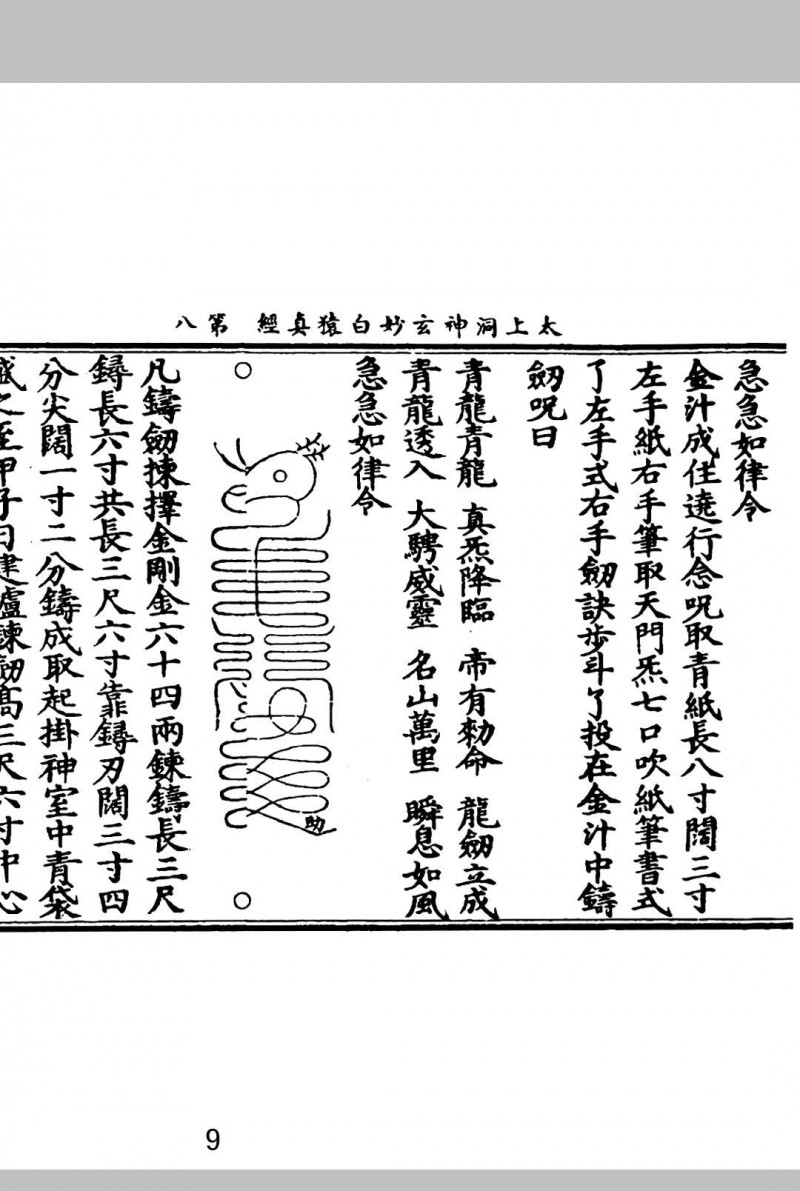 太上洞神玄妙白猿真經　第八
急急如律令
金汁成住遶行念呪取青紙長八寸闊三寸
左手紙右手筆取天門炁七口吹紙筆書式
了左手式右手劒訣步斗了投在金汁中鑄
劒呪曰
青龍青龍　真炁降臨　帝有勑命　龍劒立成
青龍透入　大騁威靈　名山萬里　瞬息如風
急急如律令
助
凡鑄劒揀擇金剛金六十四兩鍊鑄長三尺
鐏長六寸共長三尺六寸靠鐏刃闊三寸四
分尖闊一寸二分鑄成取起掛神室中青袋
之至甲子日建爐鍊劒高三尺六寸中心
9